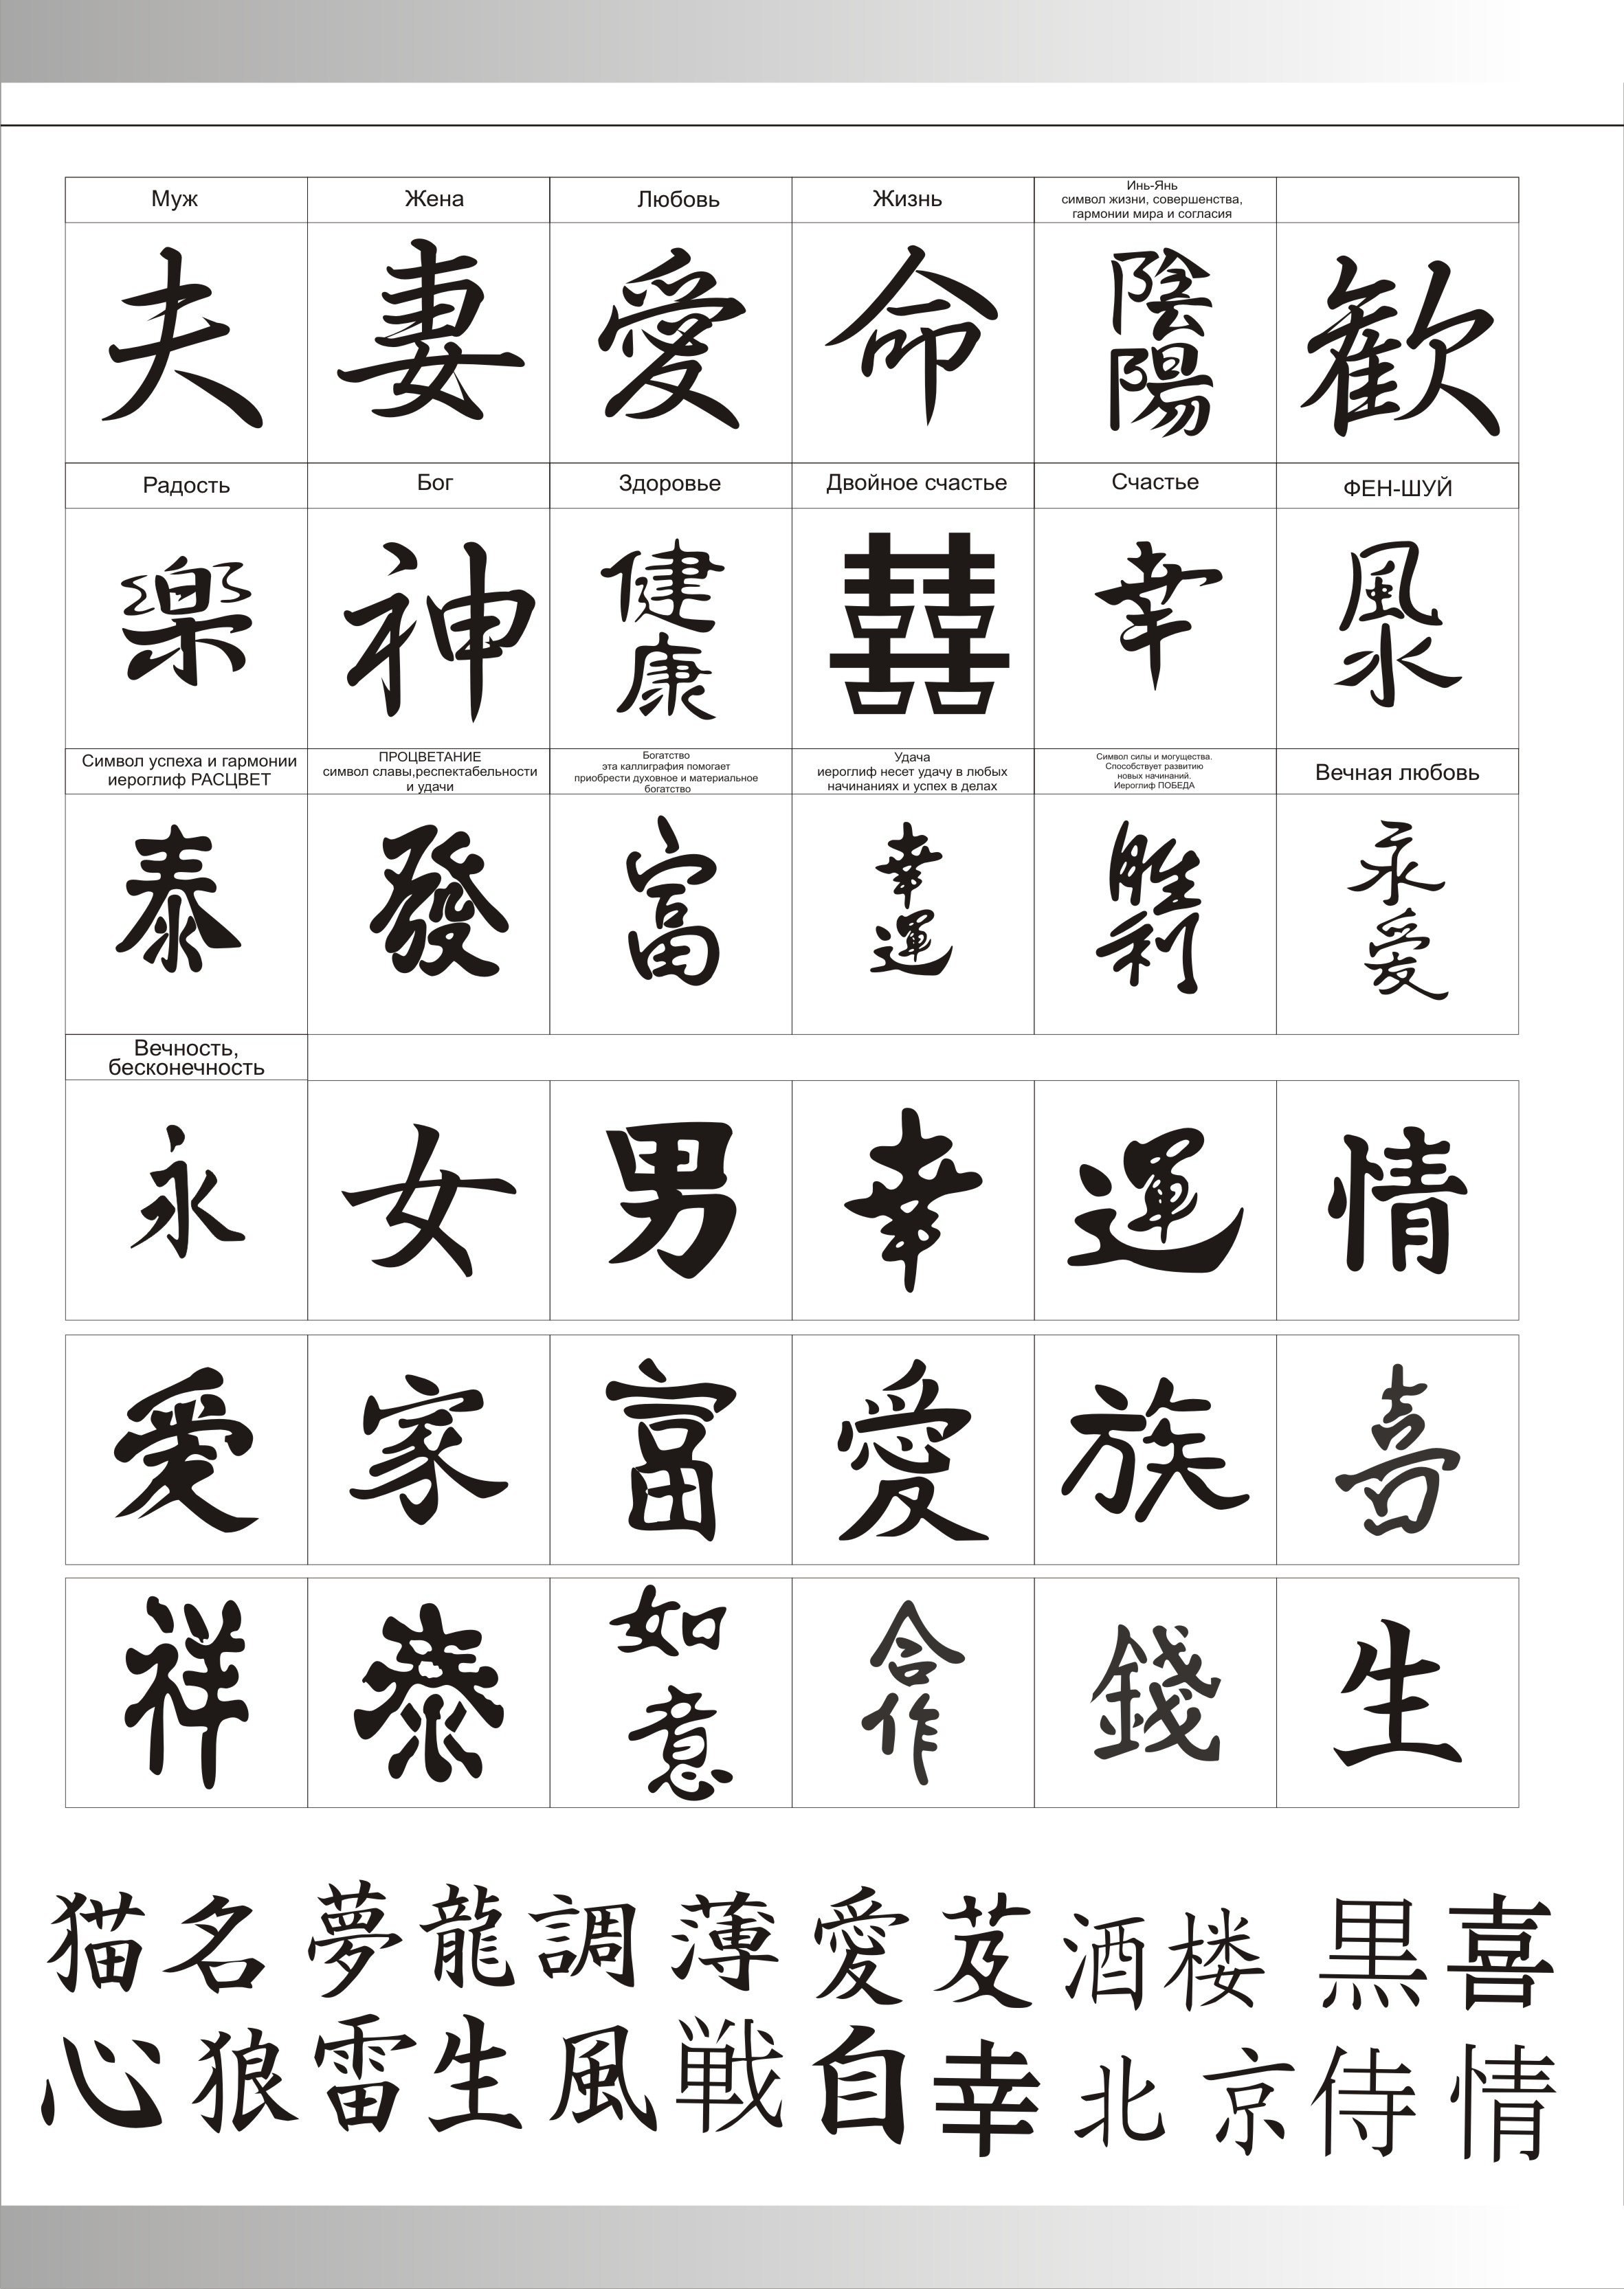 Муж Жена Любовь Жизнь
Инь-Янь
символ жизни, совершенства,
гармонии мира и согласия
夫 妻 愛 命 陰陽 歓
Радость Бог Здоровье Двойное счастье Счастье ФЕН-ШУЙ
楽 神 健康 囍 幸 風水
Символ успеха и гармонии
иероглиф РАСЦВЕТ
ПРОЦВЕТАНИЕ
символ славы,респектабельности
и удачи
Богатство
эта каллиграфия помогает
приобрести духовное и материальное
богатство
Удача
иероглиф несет удачу в любых
начинаниях и успех в делах
Символ силы и могущества.
Способствует развитию
новых начинаний.
Иероглиф ПОБЕДА
Вечная любовь
泰 發 富 幸運 胜利 永愛
Вечность,
бесконечность
永 女 男 幸 運 情
愛 家 富 愛 族 喜
祥 泰 如意 合作 錢 生
猫 名 夢 龍 調 薄 愛 芨 酒 楼 黒 喜
心 狼 雷 生 風 戦 自 幸 北 京 侍 情